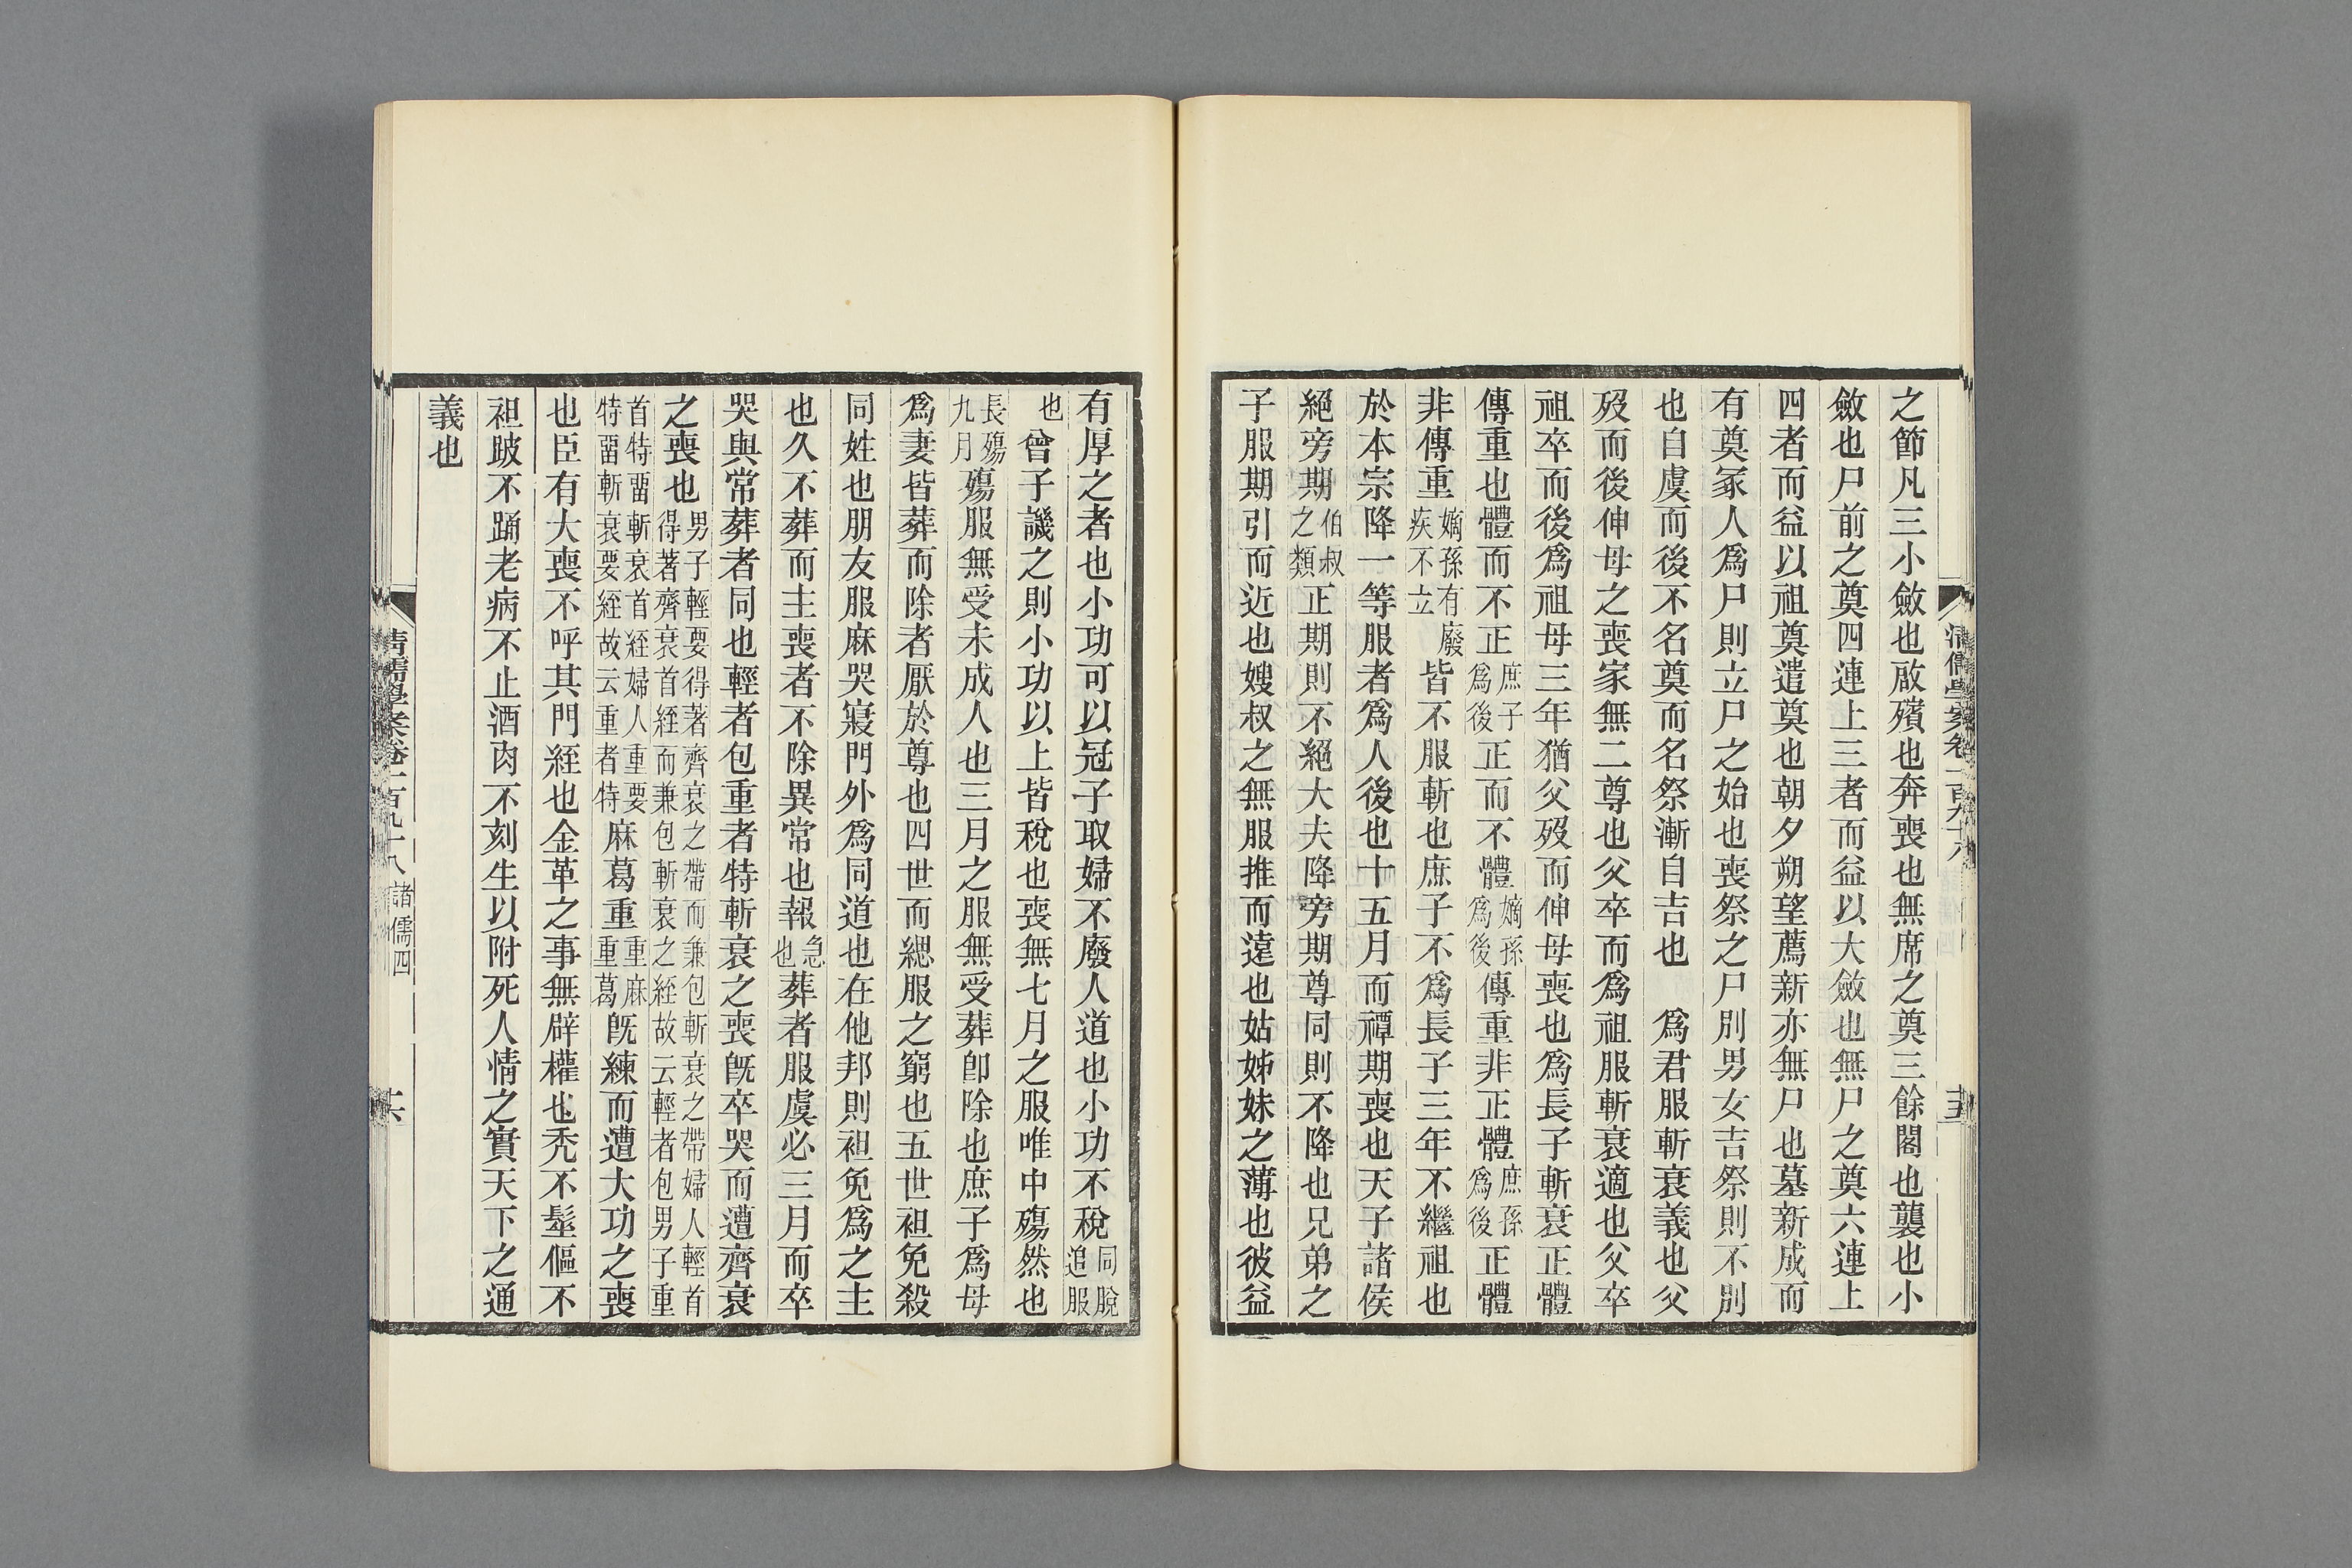 之節凡三小斂也啟殯也奔喪也無席之奠三餘閣也襲也小
斂也尸前之奠四連上三者而益以大斂也無尸之奠六連上
四者而益以祖奠遣奠也朝夕朔望薦新亦無尸也墓新成而
有奠冢人爲尸則立尸之始也喪祭之尸別男女吉祭則不別
也自虞而後不名奠而名祭漸自吉也　爲君服斬衰義也父
歿而後伸母之喪家無二尊也父卒而爲祖服斬衰適也父卒
祖卒而後爲祖母三年猶父歿而伸母喪也爲長子斬衰正體
傳重也體而不正庶子爲後正而不體嫡孫爲後傳重非正體庶孫爲後正體
非傳重嫡孫有廢疾不立皆不服斬也庶子不爲長子三年不繼祖也
於本宗降一等服者爲人後也十五月而禫期喪也天子諸侯
絕旁期伯叔之類正期則不絕大夫降旁期尊同則不降也兄弟之
子服期引而近也嫂叔之無服推而遠也姑姊妹之薄也彼益
有厚之者也小功可以冠子取婦不廢人道也小功不稅同脫追服
也曾子譏之則小功以上皆稅也喪無七月之服唯中殤然也
長殤九月殤服無受未成人也三月之服無受葬卽除也庶子爲母
爲妻皆葬而除者厭於尊也四世而緦服之窮也五世袒免殺
同姓也朋友服麻哭寢門外爲同道也在他邦則袒免爲之主
也久不葬而主喪者不除異常也報急也葬者服虞必三月而卒
哭與常葬者同也輕者包重者特斬衰之喪旣卒哭而遭齊衰
之喪也男子輕要得著齊衰之帶而兼包斬衰之帶婦人輕首得著齊衰首絰而兼包斬衰之絰故云輕者包男子重
首特畱斬衰首絰婦人重要特畱斬衰要絰故云重者特麻葛重重麻重葛旣練而遭大功之喪
也臣有大喪不呼其門絰也金革之事無辟權也禿不髽傴不
袒跛不踊老病不止酒肉不刻生以附死人情之實天下之通
義也
清儒學案卷一百九十八　諸儒四　十六